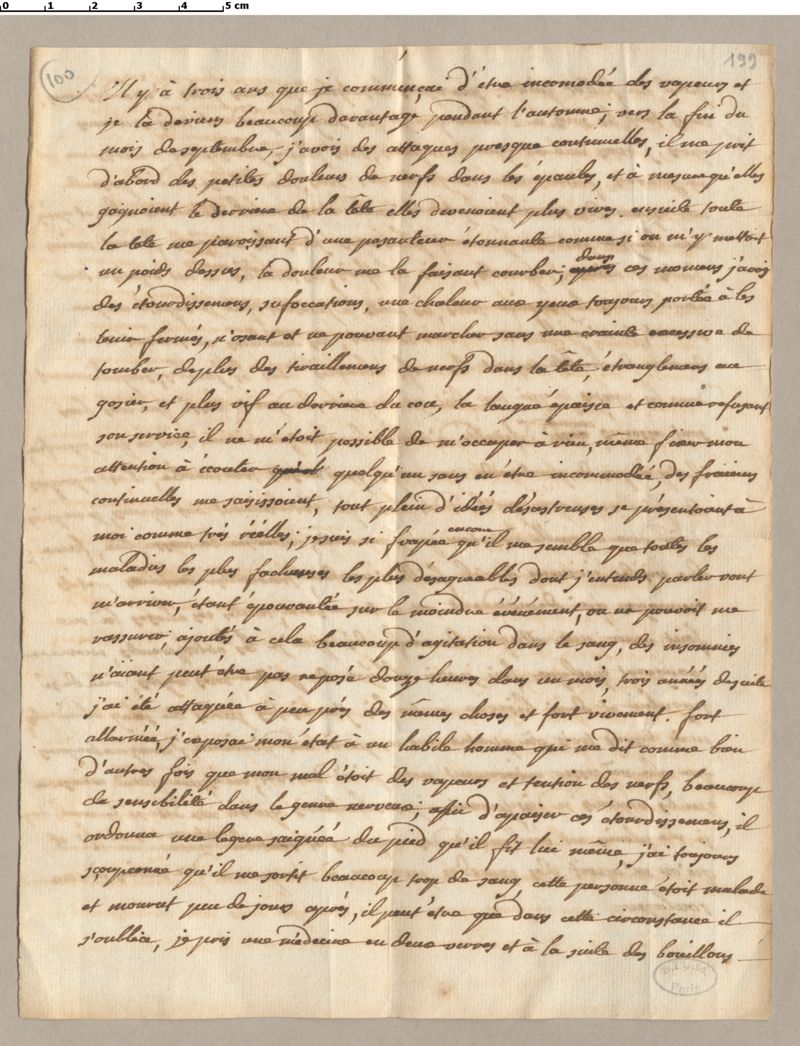 0 1 2 3 4 5 cm
100
199
Il y à trois ans que je commençai d'étre incomodée des vapeurs et
je la deviens beaucoup davantage pendant l'automne; vers la fin du
mois de septembre, j'avois des attaques presque continuelles, il me prit
d'abord des petites douleurs de nerfs dans les épaules, et à mesure qu'elles
gagnoient le derriere de la tête elles devenoient plus vives. ensuite toute
la tete me paroissant d'une pesanteur étonnante comme si on m'y mettoit
un poids dessus, la douleur me la faisant courber; dans après ces momens j'avois
des étourdissemens, sufoccations, une chaleur aux yeux toujours portée à les
tenir fermés, n'osant et ne pouvant marcher sans une crainte excessive de
tomber, de plus des tiraillemens de nerfs dans la tête, étranglemens au
gosier, et plus vif au derriere du cou, la langue épaisse et comme refusant
son service, il ne m'étoit possible de m'occuper à rien, même fixer mon
attention à écouter quelqu'un sans en étre incommodée, des fraieurs
continuelles me saisissoient, tout plein d'idées désastreuses se présentoient à
moi comme trés réélles; je suis si frapée encore qu'il me semble que toutes les
maladies les plus facheuses les plus désagreables dont j'entends parler vont
m'arriver, étant épouvantée sur le moindre événément, on ne pouvoit me
rassurer, ajoutés à cela beaucoup d'agitation dans le sang, des insomnies
n'aiant peut être pas reposé douze heures dans un mois, trois années de suite
j'ai été attaquée à peu prés des mêmes choses et fort vivement. fort
allarmée, j'exposai mon état à un habile homme qui me dit comme bien
d'autres fois que mon mal étoit des vapeurs et tention des nerfs, beaucoup
de sensibilité dans le genre nerveux; afin d'apaiser ces étourdissemens, il
ordonna une legere saignée du pied qu'il fit lui même, j'ai toujours
sçoupconné qu'il me sortit beaucoup trop de sang, cette personne étoit malade
et mourut peu de jours après, il peut étre que dans cette circonstance il
s'oublia, je pris une médecine en deux verres et à la suite des bouillons
Paris